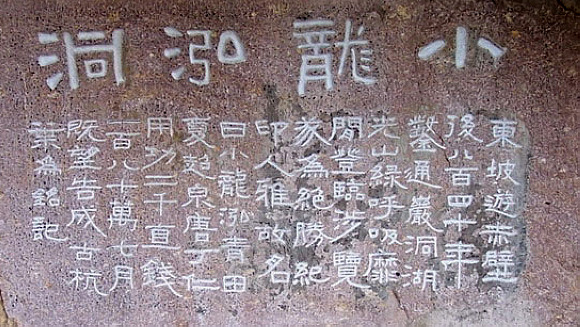 小龍泓洞
東坡遊赤壁
後八百四十年
鑿通巖洞湖
光山綠呼吸靡
閒登臨涉覽
冣為絕勝紀
印人雅故名
曰小龍泓青田
夏超泉唐丁仁
用功二千直錢
一百八十萬七月
既望告成古杭
葉為銘記